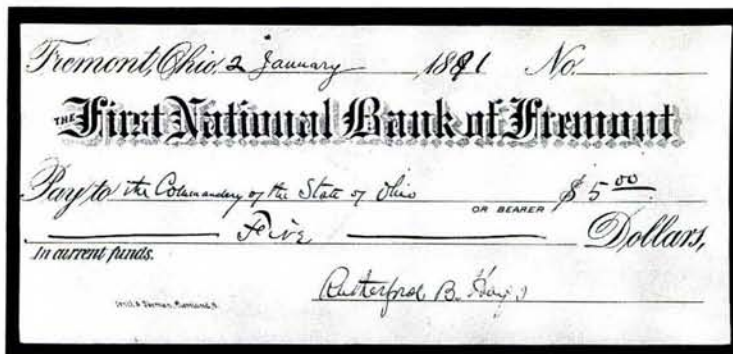 Fremont, Ohio. 2 January 1891 No.
THE First National Bank of Fremont
Pay to the Commandery of the State of Ohio OR BEARER $5 00
Five Dollars,
In current funds.
Rutherford B. Hayes